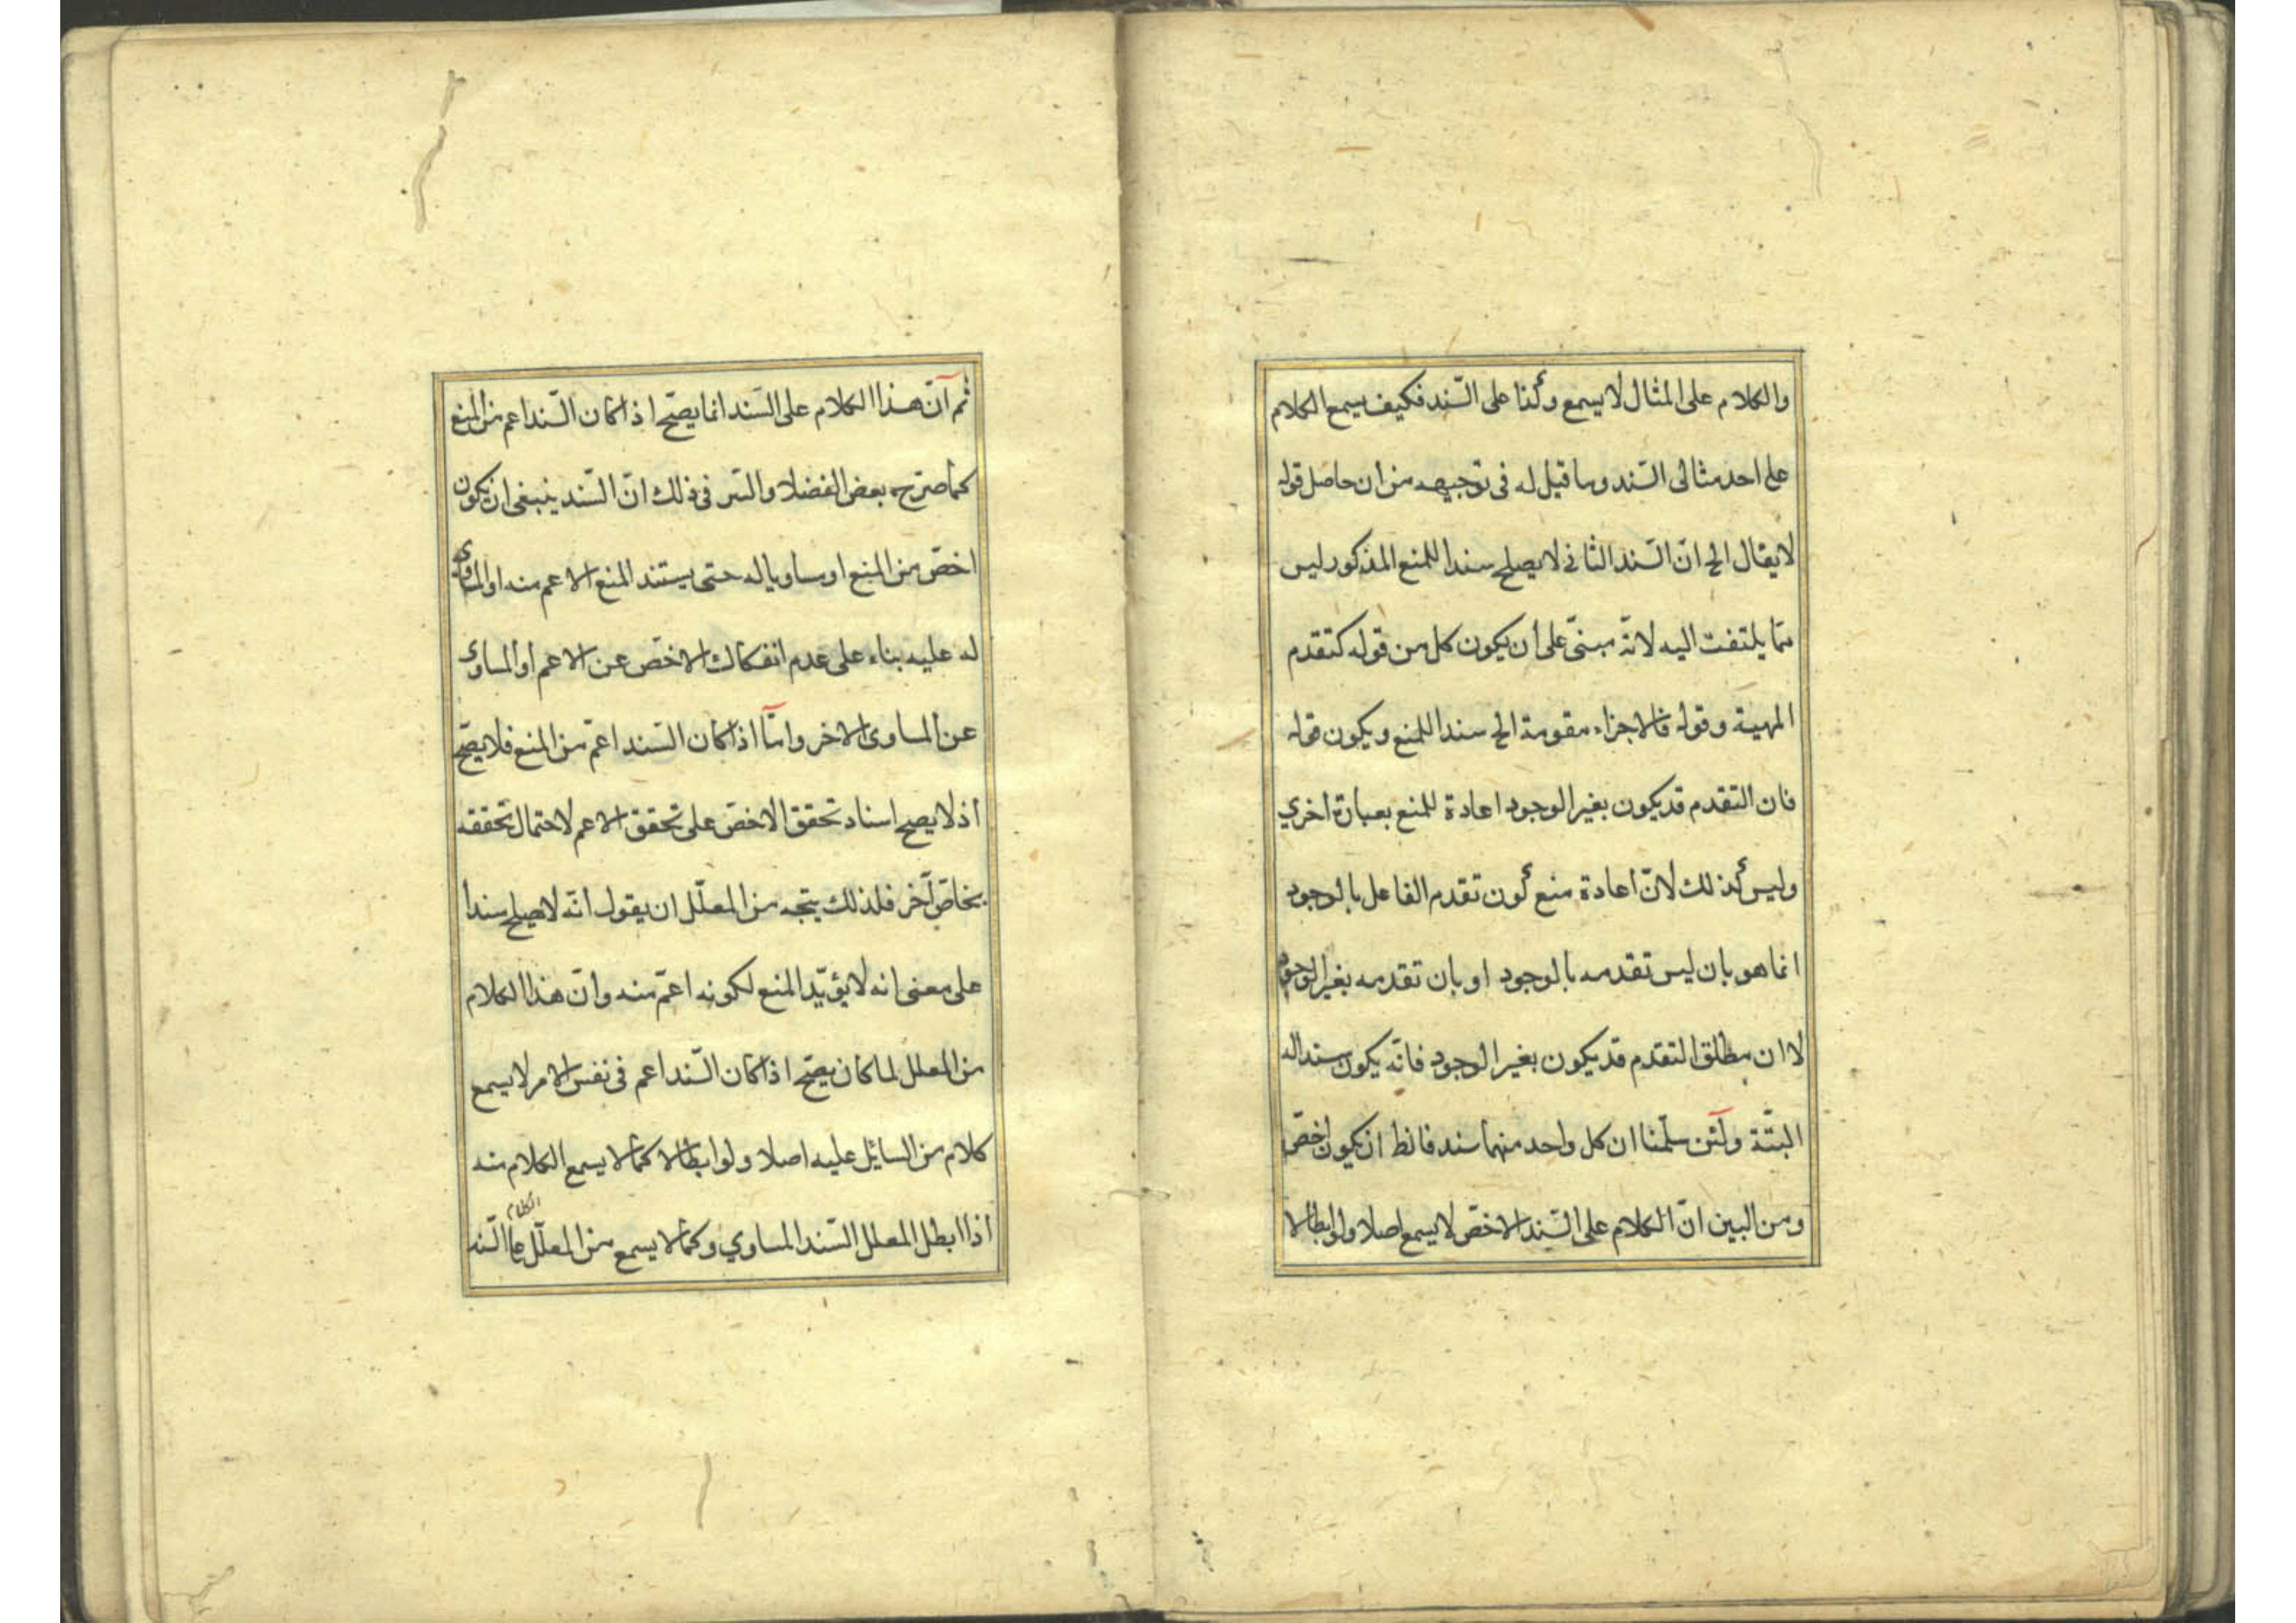 والكلام على المثال لا يسمع وكذا على السّند فكيف يسمع الكلام
على احد مثالى السّند وما قيل له فى توجيهه من ان حاصل قوله
لا يقال الخ انّ السّند الثانى لا يصلح سندا للمنع المذكور ليس
ممّا يلتفت اليه لانّه مبنىّ على أن يكون كل من قوله كتقدم
المهية وقوله فالاجزاء مقومة الخ سندا للمنع ويكون قوله
فان التقدم قد يكون بغير الوجود اعادة للمنع بعبارة اخري
وليس كذلك لانّ اعادة منع كون تقدم الفاعل بالوجود
انما هو بان ليس تقدمه بالوجود او بان تقدمه بغير الوجود
لا ان مطلق التقدم قد يكون بغير الوجود فانّه يكون سندا له
البتّة ولئن سلّمنا ان كل واحد منهما سند فالظ ان يكون اخصّ
ومن البين انّ الكلام على السّند الاخصّ لا يسمع اصلا ولو ابطالا
ثم انّ هذا الكلام على السّند انما يصحّ اذا كان السّند اعم من المنع
كما صرّح به بعض الفضلا والسّر فى ذلك انّ السّند ينبغى ان يكون
اخصّ من المنع او مساويا له حتى يستند المنع الاعم منه او المساوى
له عليه بناء على عدم انفكاك الاخصّ عن الاعم او المساوى
عن المساوى الاخر وامّا اذا كان السّند اعمّ من المنع فلا يصحّ
اذ لا يصح اسناد تحقق الاخصّ على تحقق الاعم لاحتمال تحققه
بخاصّ آخر فلذلك يتجه من المعلّل ان يقول انّه لا يصلح سندا
على معنى انه لا يؤيّد المنع لكونه اعمّ منه وانّ هذا الكلام
من المعلل لما كان يصحّ اذا كان السّند اعم فى نفس الامر لا يسمع
كلام من السائل عليه اصلا ولو ابطالا كما لا يسمع الكلام منه
اذا ابطل المعلل السّند المساوي وكما لا يسمع من المعلّل الكلام على السّند